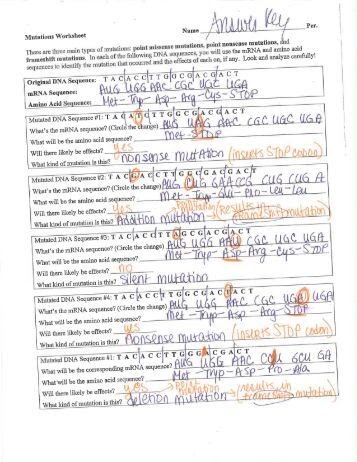 Mutations Worksheet
Name Answer Key Per.
There are three main types of mutations: point missense mutations, point nonsense mutations, and
frameshift mutations. In each of the following DNA sequences, you will use the mRNA and amino acid
sequences to identify the mutation that occurred and the effects of each on, if any. Look and analyze carefully!
Original DNA Sequence: T A C A C C T T G G C G A C G A C T
mRNA Sequence: AUG UGG AAC CGC UGC UGA
Amino Acid Sequence: Met - Tryp - Asp - Arg - Cys - STOP
Mutated DNA Sequence #1: T A C A T C T T G G C G A C G A C T
What's the mRNA sequence? (Circle the change) AUG UAG AAC CGC UGC UGA
What will be the amino acid sequence? Met - STOP
Will there likely be effects? yes
What kind of mutation is this? nonsense mutation (inserts STOP codon)
Mutated DNA Sequence #2: T A C G A C C T T G G C G A C G A C T
What's the mRNA sequence? (Circle the change) AUG CUG GAA CCG CUG CUG A
What will be the amino acid sequence? Met - - Glu - Pro - Leu - Leu
Will there likely be effects? yes
What kind of mutation is this? Addition mutation (results in frameshift mutation)
Mutated DNA Sequence #3: T A C A C C T T A G C G A C G A C T
What's the mRNA sequence? (Circle the change) AUG UGG AAU CGC UGC UGA
What will be the amino acid sequence? Met - Tryp - Asp - Arg - Cys - STOP
Will there likely be effects? no
What kind of mutation is this? Silent mutation
Mutated DNA Sequence #4: T A C A C C T T G G C G A C T A C T
What's the mRNA sequence? (Circle the change) AUG UGG AAC CGC UGA UGA
What will be the amino acid sequence? Met - Tryp - Asp - Arg - STOP
Will there likely be effects? yes
What kind of mutation is this? Nonsense mutation (inserts STOP codon)
Mutated DNA Sequence #1: T A C A C C T T G G G A C G A C T
What will be the corresponding mRNA sequence? AUG UGG AAC CCU GCU GA
What will be the amino acid sequence? Met - Tryp - Asp - Pro - Ala
Will there likely be effects? yes
What kind of mutation is this? deletion mutation (results in frameshift mutation)